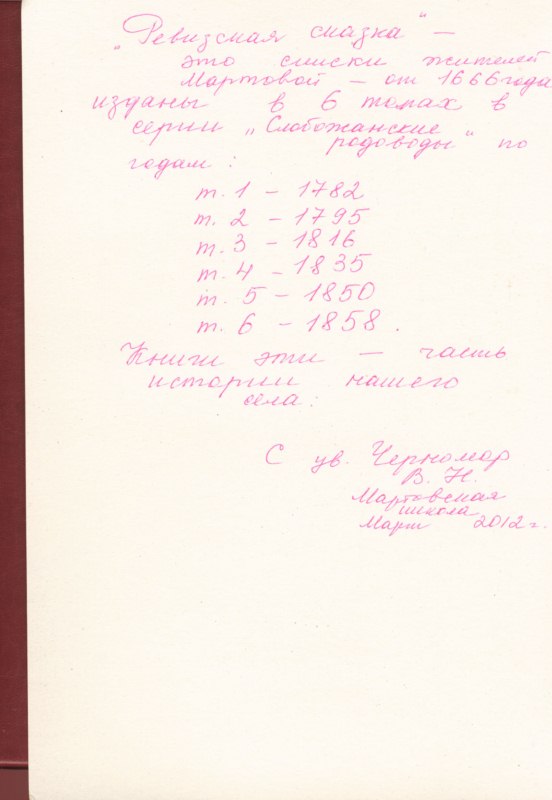 „Ревизская сказка" –
это списки жителей
Мартовой – от 1666 года
изданы в 6 томах в
серии „Слобожанские
родоводы" по
годам :
т. 1 – 1782
т. 2 – 1795
т. 3 – 1816
т. 4 – 1835
т. 5 – 1850
т. 6 – 1858 .
Книги эти – часть
истории нашего
села .
С ув. Черномор
В. Н.
Мартовская
школа
Март 2012 г.